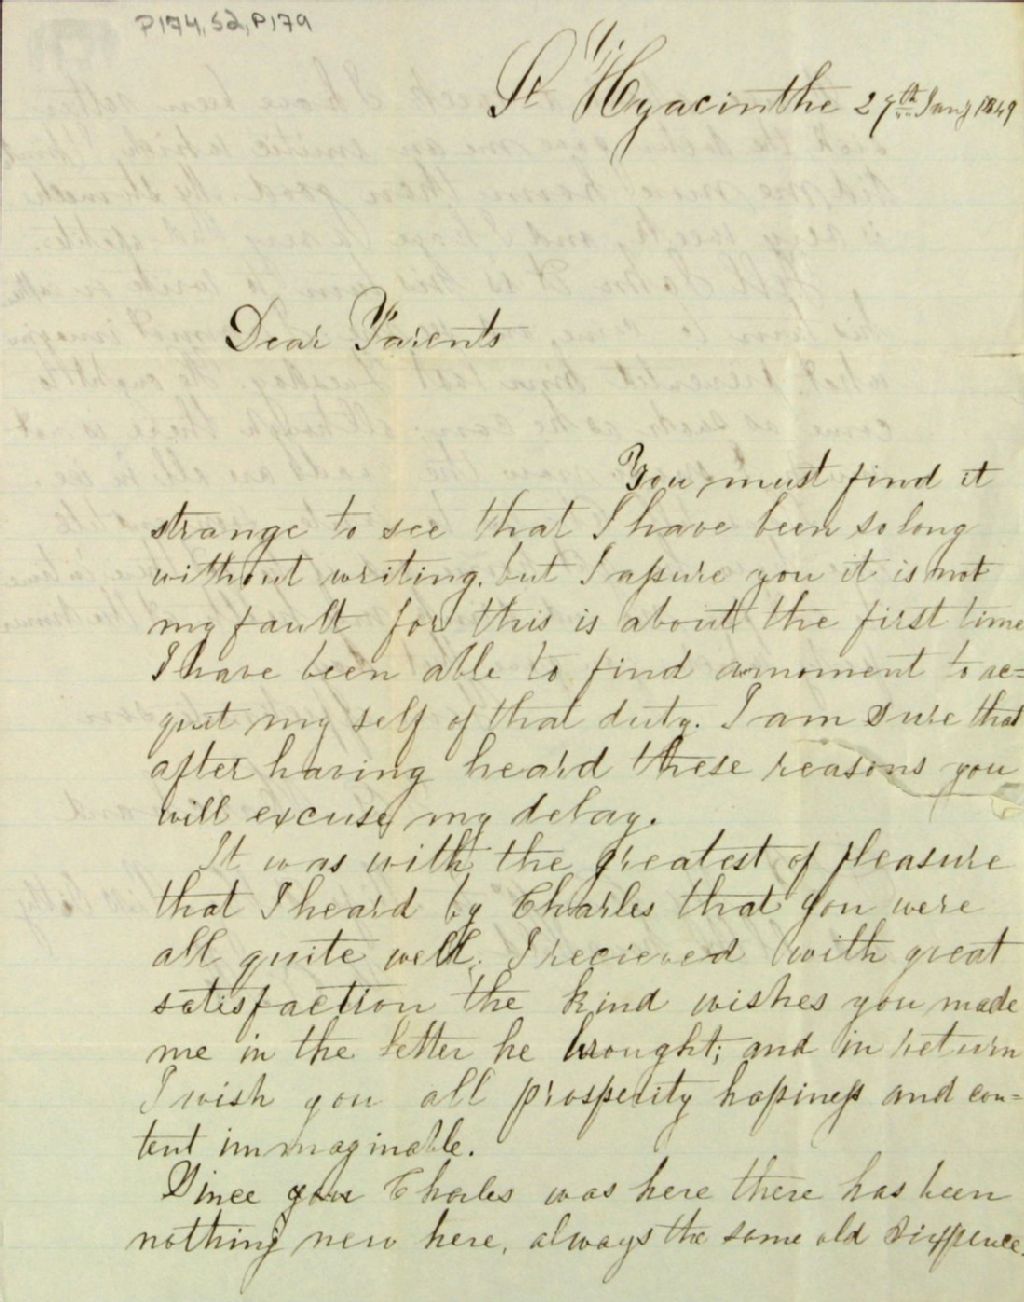 P174,S2,P179
St Hyacinthe 27th Jany 1849
Dear Parents
You must find it
strange to see that I have been so long
without writing, but I assure you it is not
my fault for this is about the first time
I have been able to find a moment to ac=
quit my self of that duty. I am sure that
after having heard these reasons you
will excuse my delay.
It was with the greatest of pleasure
that I heard by Charles that you were
all quite well. I recieved with great
satisfaction the kind wishes you made
me in the letter he brought; and in return
I wish you all prosperity hapiness and con=
tent immaginable.
Since you Charles was here there has been
nothing new here, always the same old